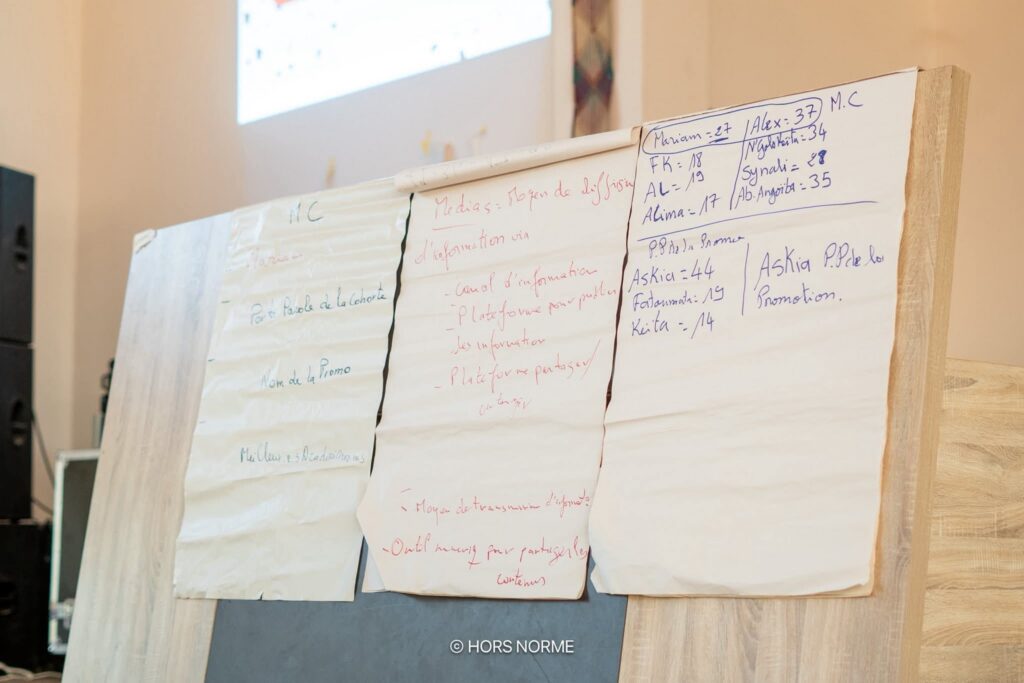 MC
Mariam
Porte Parole de la Cohorte
Nom de la Promo
Meilleur
Medias = Moyen de diffusion
d'information via
- Canal d'information
- Plateforme pour publier
des information
- Plateforme partager/
- Moyen de transmission d'informat°
- Outil pour partager les
contenus
Mariam = 27 / Alex = 37 M.C
FK = 18
N'Golo Keita = 34
AL = 19
Synali = 28
Alima = 17
Ab. Angoiba = 35
P.P de la Promo
Askia = 44
Fatoumata = 19
Keita = 14
Askia P.P de la
Promotion.
© HORS NORME